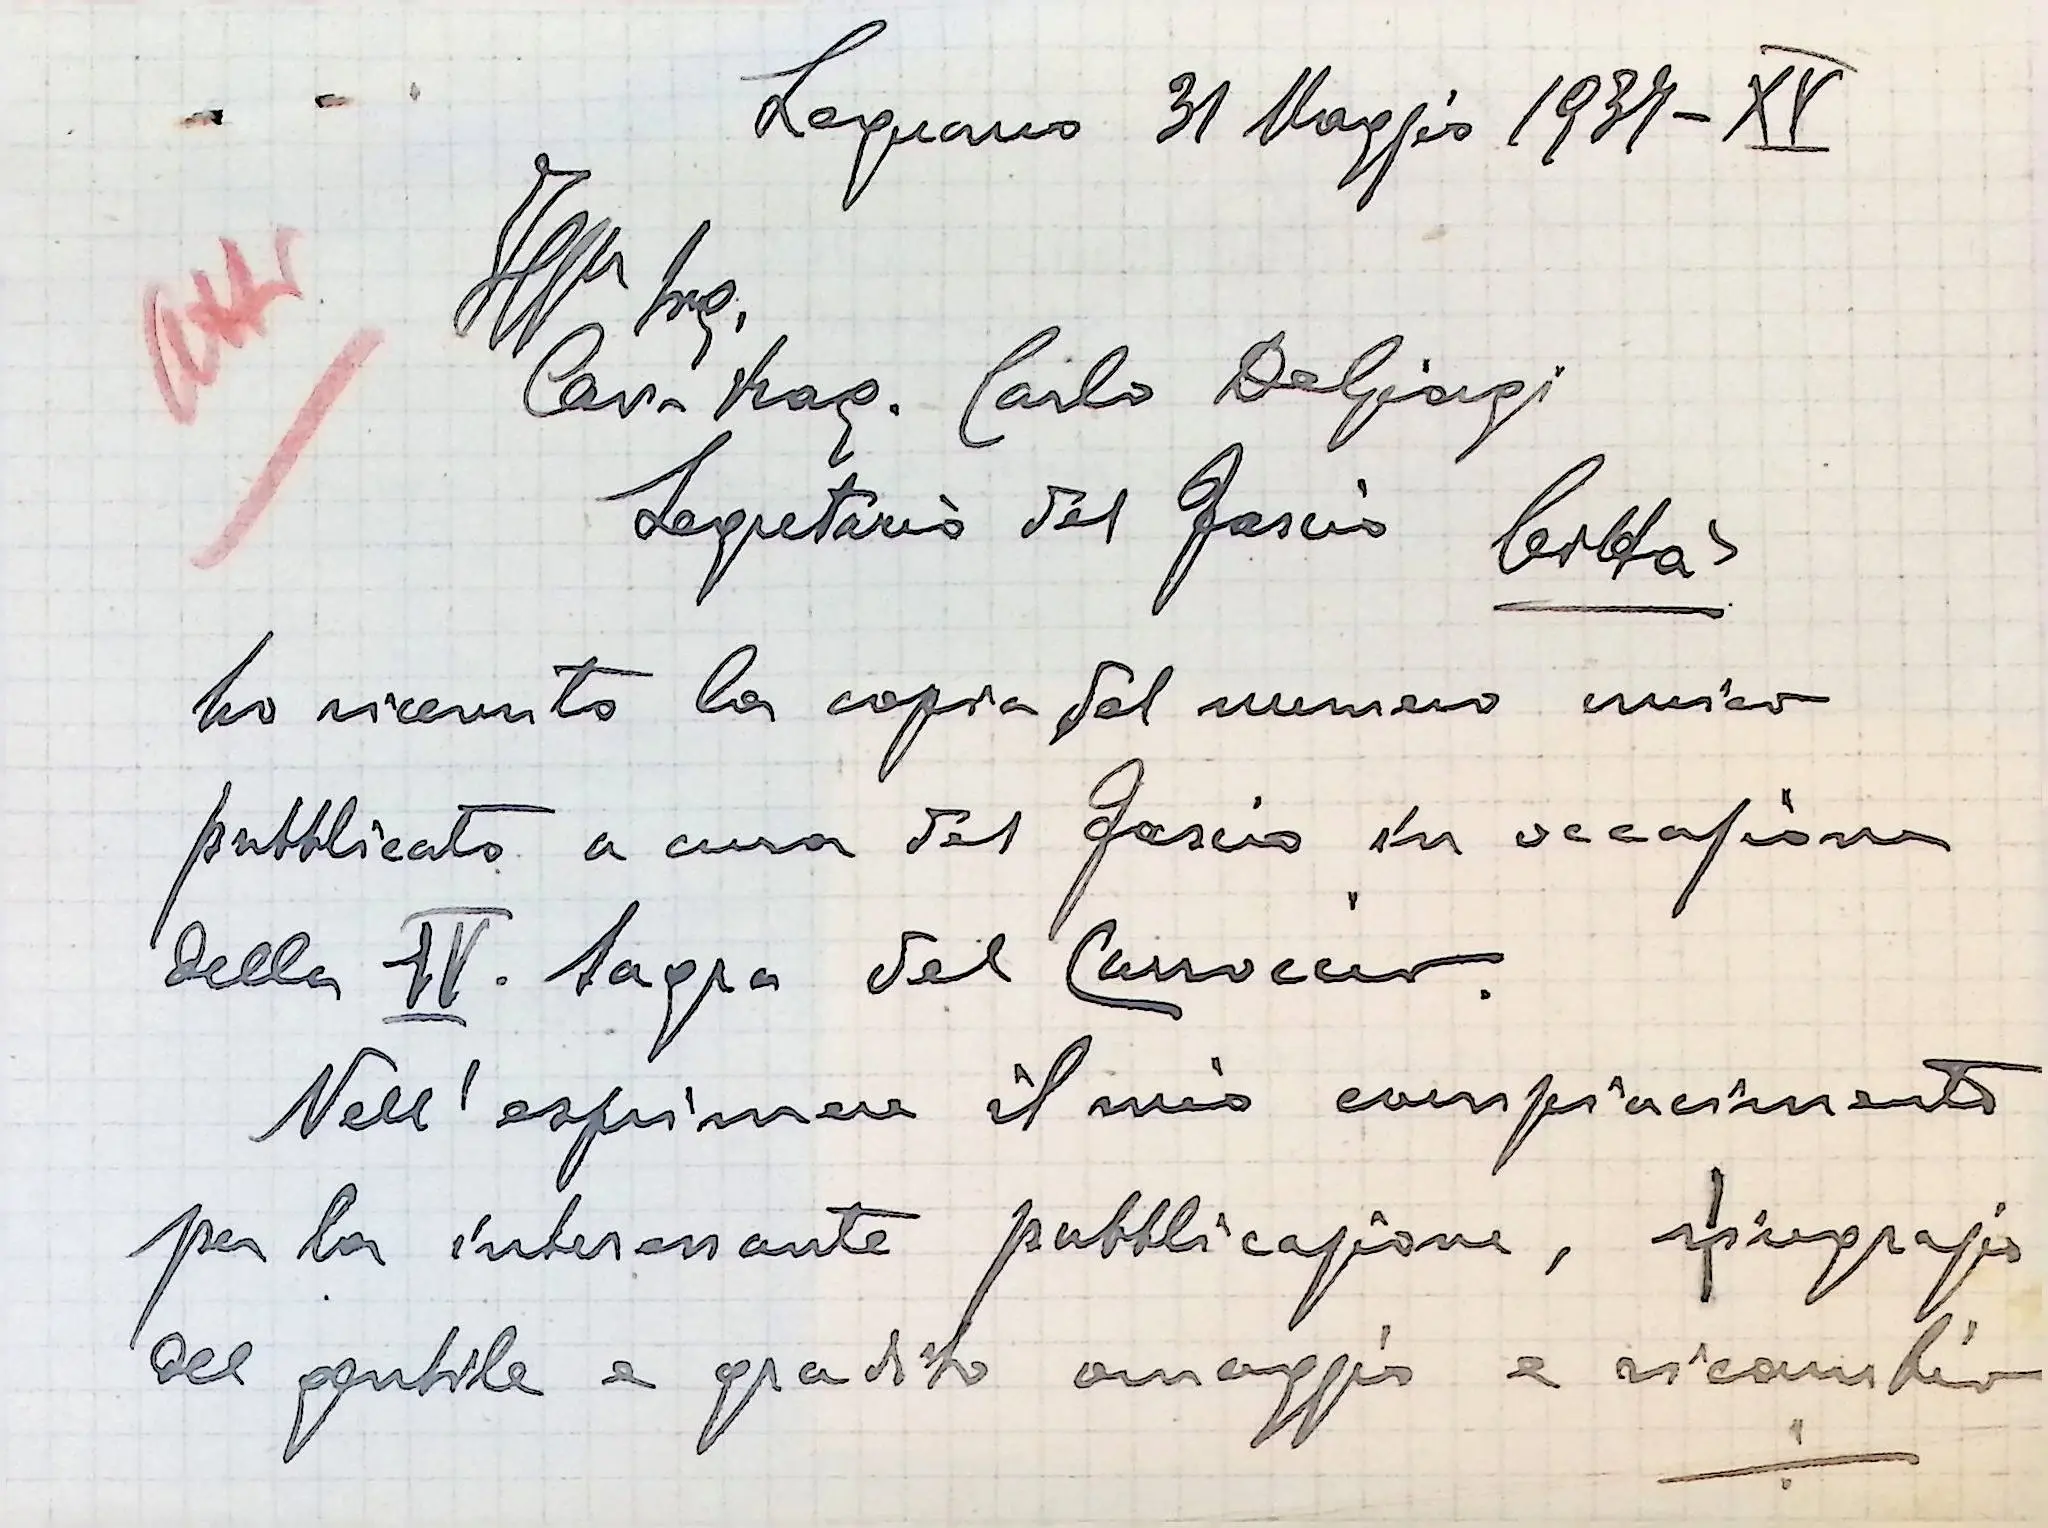 Legnano 31 Maggio 1937-XV
Cav. Rag. Carlo DeGiorgi
Segretario del Fascio Città
ho ricevuto la copia del numero unico
pubblicato a cura del Fascio in occasione
della IV. Sagra del Carroccio.
Nell'esprimere il mio compiacimento
per la interessante pubblicazione, ringrazio
del gentile e gradito omaggio e ricambio